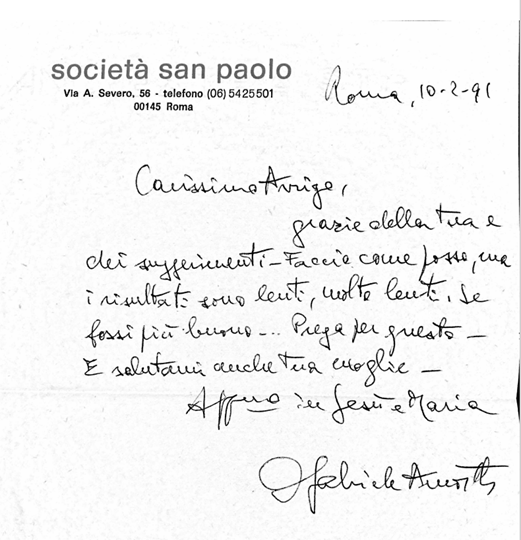 società san paolo
Via A. Severo, 56 - telefono (06) 5425501
00145 Roma
Roma, 10-2-91
Carissimo Arrigo,
grazie della tua e
dei suggerimenti - Faccio come posso, ma
i risultati sono lenti, molto lenti. Se
fossi più buono --- Prega per questo -
E salutami anche tua moglie -
Aff.mo in Gesù e Maria
D Gabriele Amorth